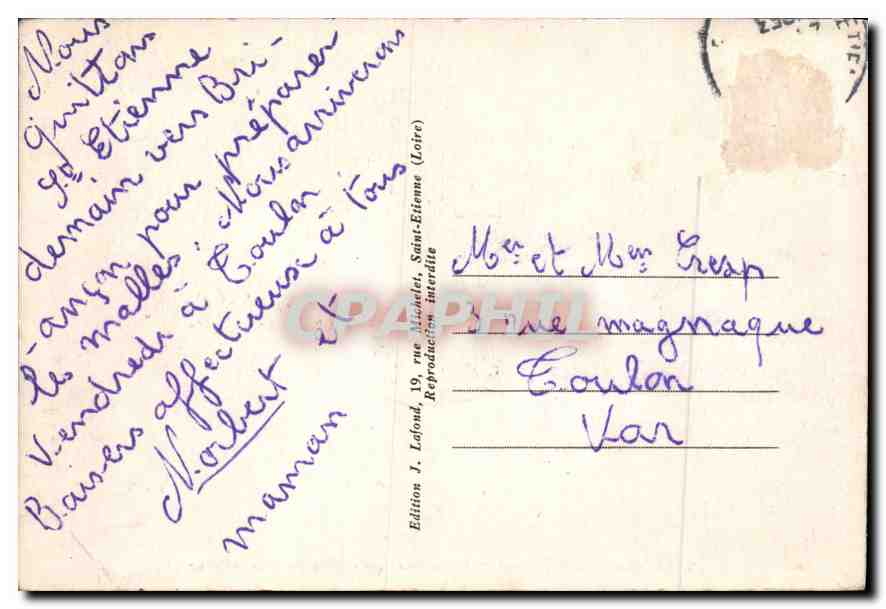 Nous
quittons
St. Etienne
demain vers Bri-
-ançon pour préparer
les malles. Nous arriverons
vendredi à Toulon.
Baisers affectueux à tous
Norbert et
maman
Edition J. Lafond, 19, rue Michelet, Saint-Etienne (Loire)
Reproduction interdite
Mer et Mem Cresp
3 rue magnaque
Toulon
Var
CPAPHIL
ETIE.